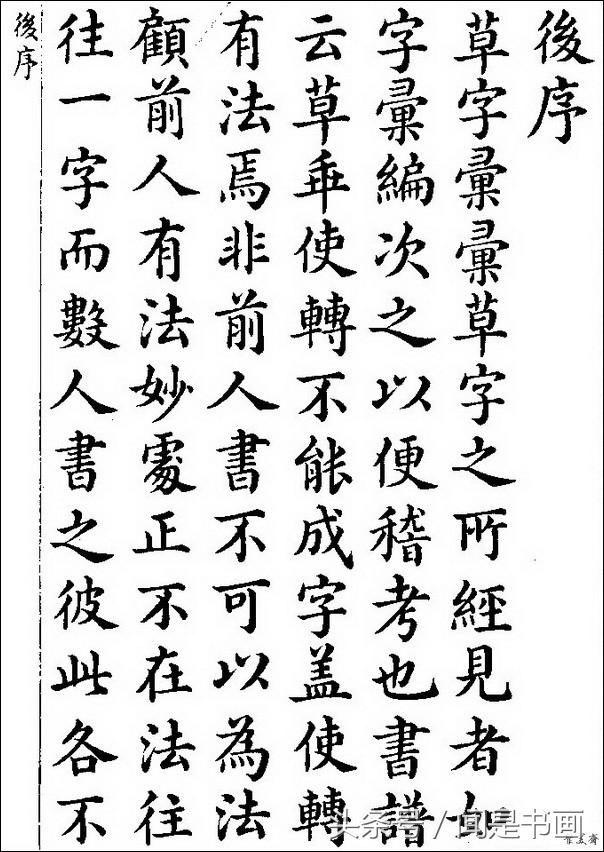 後序
草字彙彙草字之所經見者如
字彙編次之以便稽考也書譜
云草乖使轉不能成字盖使轉
有法焉非前人書不可以為法
顧前人有法妙處正不在法往
往一字而數人書之彼此各不
後序
头条号/闻是书画